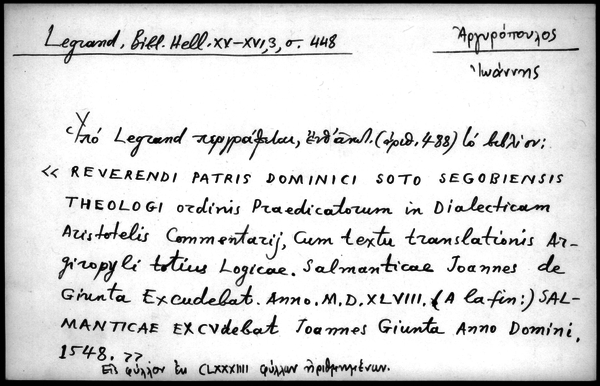 Legrand. Bibl. Hell. XV-XVI, 3, σ. 448
Ἀργυρόπουλος
Ἰωάννης
Ὑπό Legrand περιγράφεται, ἐνθ' ἀνωτ. (ἀριθ. 488) τό βιβλίον:
« REVERENDI PATRIS DOMINICI SOTO SEGOBIENSIS
THEOLOGI ordinis Praedicatorum in Dialecticam
Aristotelis Commentarij, Cum textu translationis Ar-
giropyli totius Logicae. Salmanticae Joannes de
Giunta Excudebat. Anno. M.D.XLVIII. (A la fin:) SAL-
MANTICAE EXCVdebat Joannes Giunta Anno Domini.
1548. »
Εἰς φύλλον ἐκ CLXXXIIII φύλλων ἠριθμημένων.